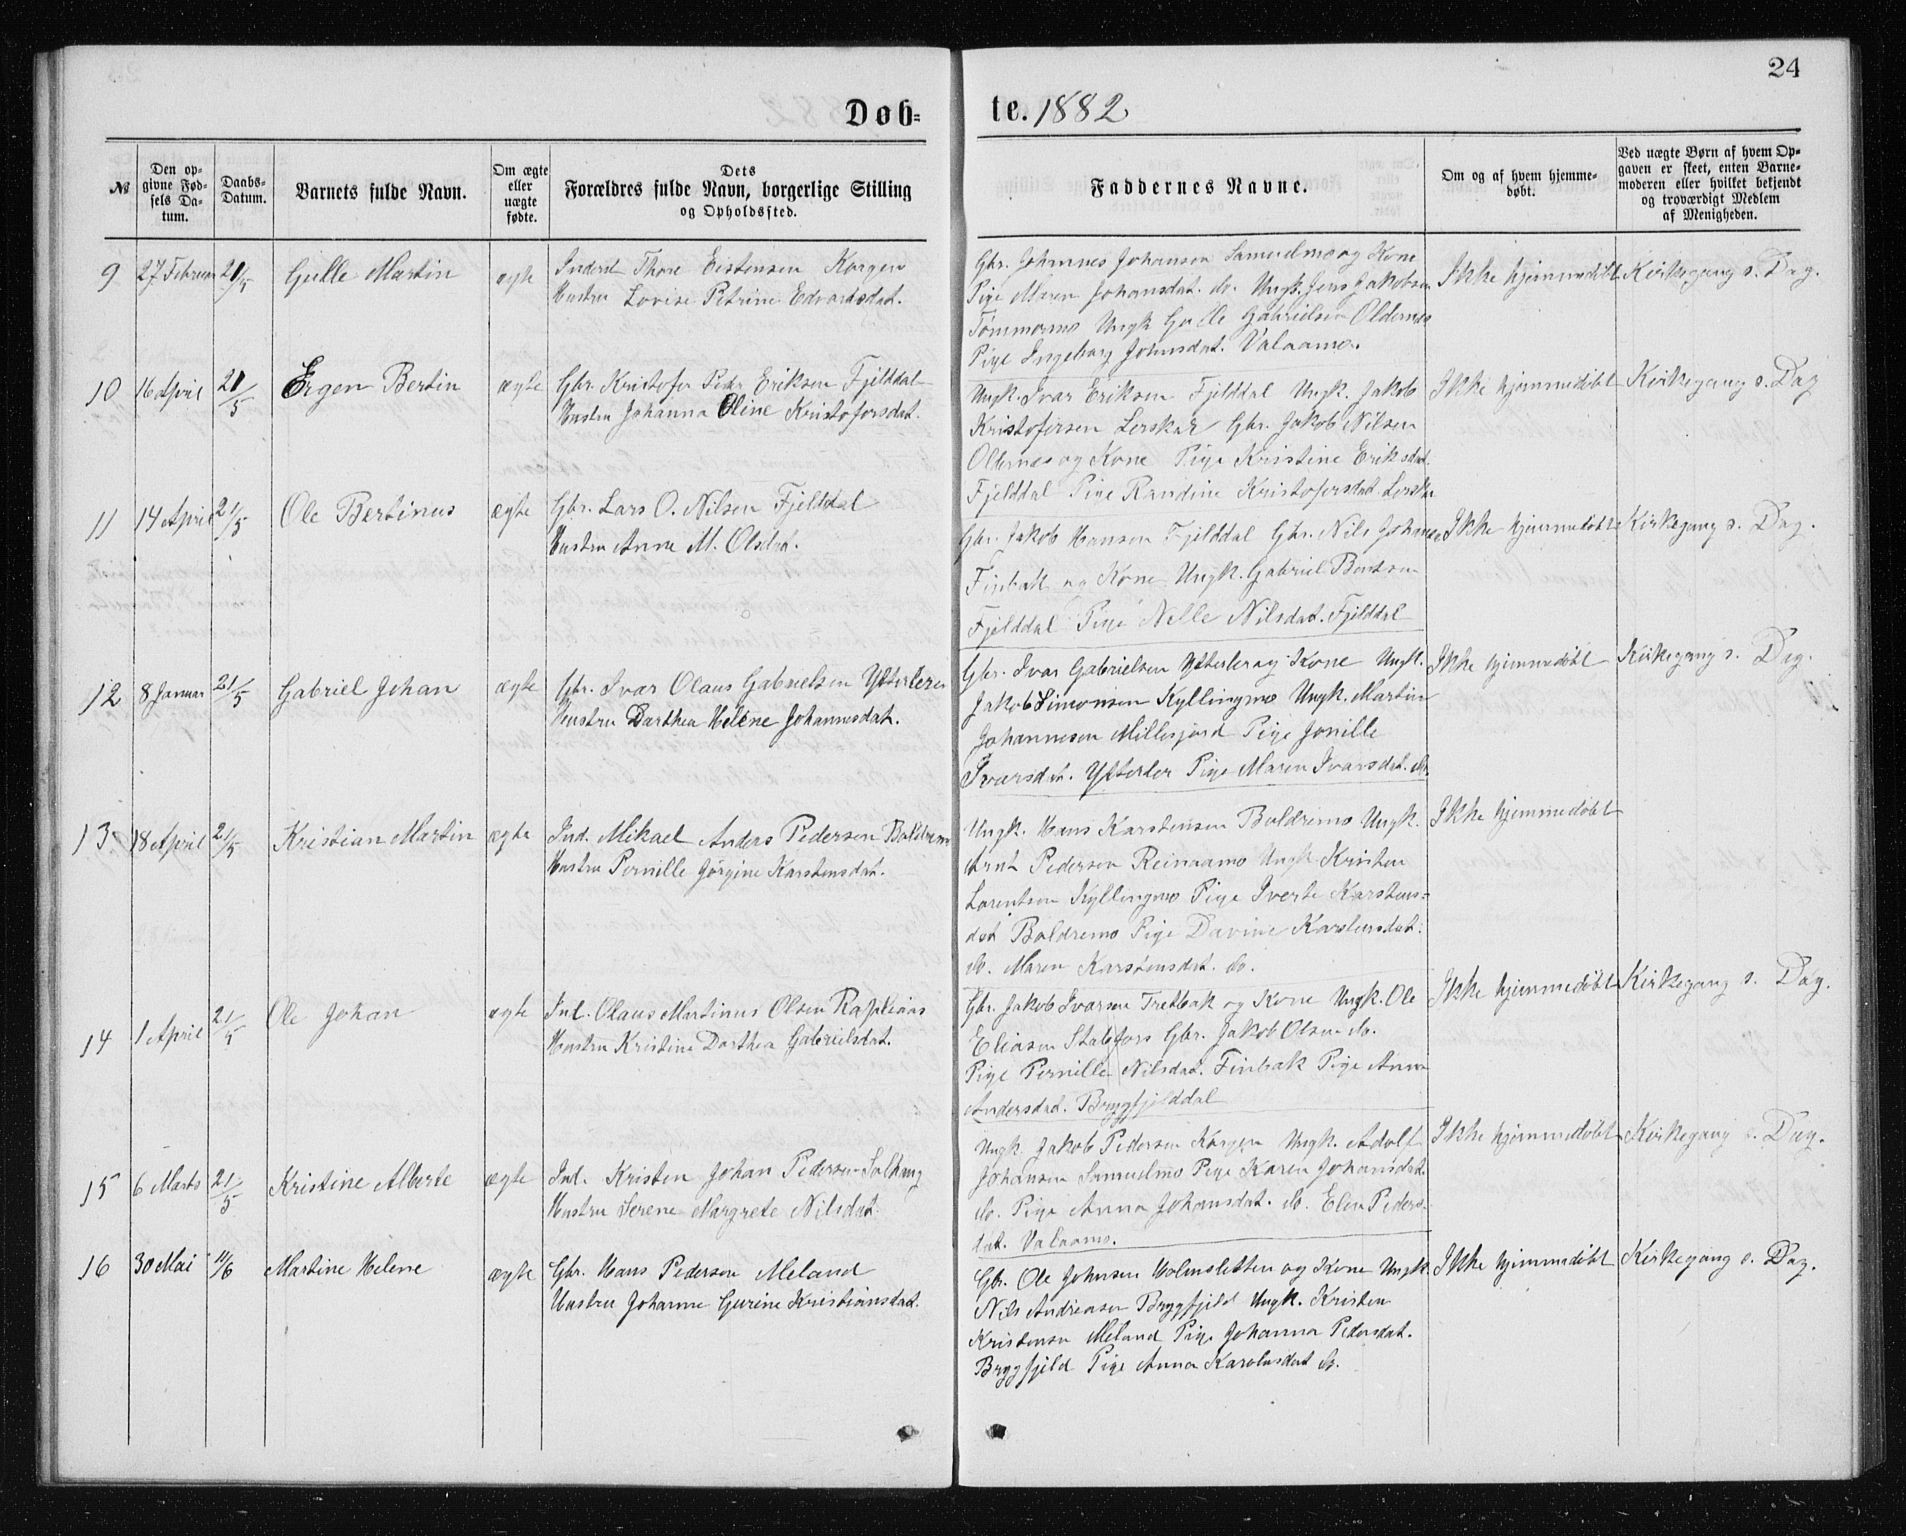 24
Døbte. 1882
№
Den opgivne Fødsels Datum.
Daabs-Datum.
Barnets fulde Navn.
Om ægte eller uægte fødte.
Dets Forældres fulde Navn, borgerlige Stilling og Opholdssted.
Faddernes Navne.
Om og af hvem hjemmedøbt.
Ved uægte Børn af hvem Opgaven er skeet, enten Barnemoderen eller hvilket bekjendt og troværdigt Medlem af Menigheden.
9 27 Februar 21/5 Gulle Martin ægte
Inderst Thore Eistensen Korgen
Hustru Lovise Petrine Edvardsdat.
Gbr. Johannes Johansen Samuelmo og Kone
Pige Maren Johansdat. do. Ungk. Jens Jakobsen
Tömmermo Ungk Gulle Gabrielsen Oldernes
Pige Ingeborg Johnsdat. Valaamo.
Ikke hjemmedöbt Kirkegang s. Dag.
10 16 April 21/5 Ergen Bertin ægte
Gbr. Kristofer Peder Eriksen Fjelddal
Hustru Johanna Oline Kristofersdat.
Ungk. Ivar Eriksen Fjelddal Ungk. Jakob
Kristofersen Lerskar Gbr. Jakob Nilsen
Oldernes og Kone Pige Kristine Eriksdat.
Fjelddal Pige Randine Kristofersdat Lerskar
Ikke hjemmedöbt Kirkegang s. Dag
11 14 April 21/5 Ole Bertinus ægte
Gbr. Lars O. Nilsen Fjelddal
Hustru Anne M. Olsdat.
Gbr. Jakob Hansen Fjelddal Gbr. Nils Johansen
Finbak og Kone Ungk. Gabriel Bentsen
Fjelddal Pige Nelle Nilsdat. Fjelddal
Ikke hjemmedöbt Kirkegang s. Dag.
12 8 Januar 21/5 Gabriel Johan ægte
Gbr. Ivar Olaus Gabrielsen Ytterleren
Hustru Darthea Helene Johannesdat.
Gbr. Ivar Gabrielsen Ytterler og Kone Ungk.
Jakob Simonsen Kyllingmo Ungk. Martin
Johannesen Millesjord Pige Jonille
Ivarsdat. Ytterler Pige Maren Ivarsdat. do.
Ikke hjemmedöbt Kirkegang s. Dag.
13 18 April 21/5 Kristian Martin ægte
Ind. Mikael Anders Pedersen Boldremo
Hustru Pernille Jörgine Karstensdat.
Ungk. Hans Karstensen Boldremo Ungk.
Arnt Pedersen Reinaamo Ungk Kristen
Lorentsen Kyllingmo Pige Iverte Karstens-
dat Boldremo Pige Davine Karstensdat.
do. Maren Karstensdat. do.
Ikke hjemmedöbt
14 1 April 21/5 Ole Johan ægte
Ind. Olaus Martinus Olsen Rapliaas
Hustru Kristine Darthea Gabrielsdat.
Gbr. Jakob Ivarsen Tretbak og Kone Ungk. Ole
Eliasen Stabfors Gbr. Jakob Olsen do.
Pige Pernille Nilsdat. Finbak Pige Anne
Andersdat. Brygfjelddal
Ikke hjemmedöbt Kirkegang s. Dag.
15 6 Marts 21/5 Kristine Alberte ægte
Ind. Kristen Johan Pedersen Solhaug
Hustru Serene Margrete Nilsdat.
Ungk. Jakob Pedersen Korgen Ungk. Adolf
Johansen Samuelmo Pige Karen Johansdat.
do. Pige Anna Johansdat. do. Elen Peders-
dat. Valaamo.
Ikke hjemmedöbt Kirkegang s. Dag.
16 30 Mai 11/6 Martine Helene ægte
Gbr. Hans Pedersen Meland
Hustru Johanne Gurine Kristiansdat.
Gbr. Ole Johnsen Holmsletten og Kone Ungk
Nils Andreasen Brygfjeld Ungk. Kristen
Kristensen Meland Pige Johanna Pedersdat.
Brygfjeld Pige Anna Karolusdat do.
Ikke hjemmedöbt Kirkegang s. Dag.